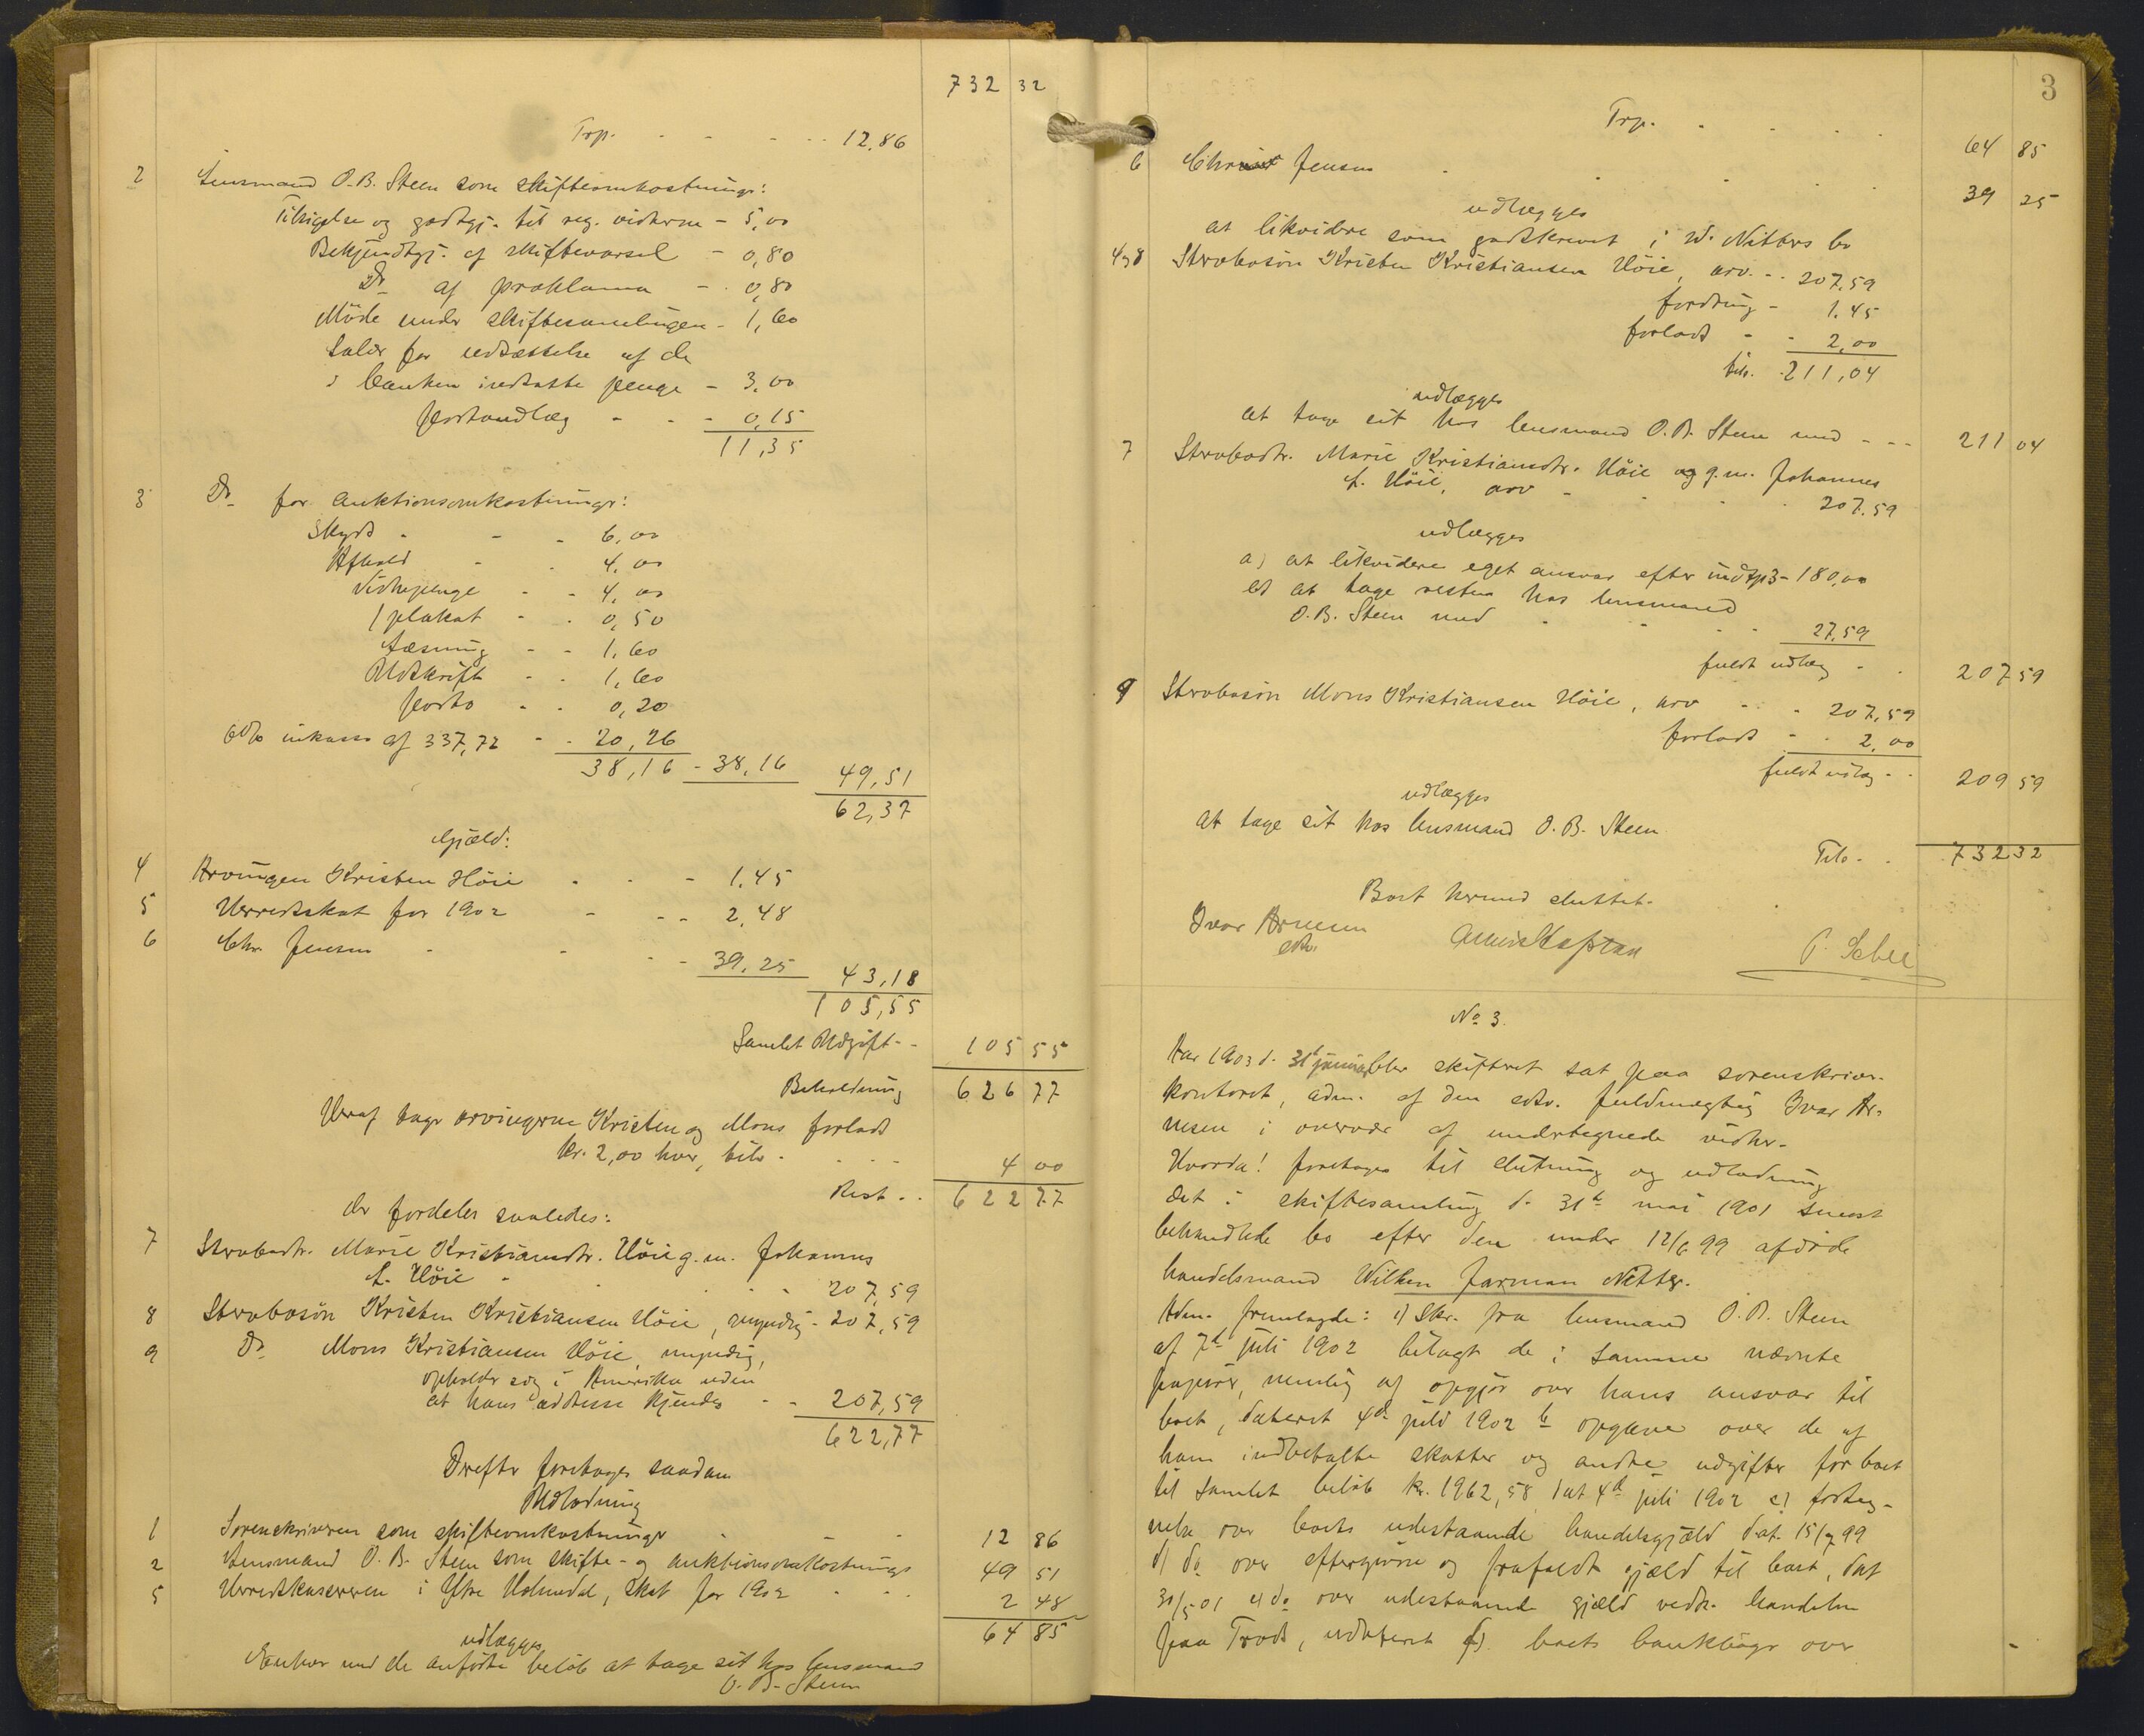 732 32
Trp. - - - - 12,86
2 Lensmand O. B. Steen som skifteomkostninger:
Tilsigelse og godtgj. til reg. vidnerne - 5,00
Bekjendtgj. af skiftevarsel - 0,80
Do af proklama - 0,80
Møde under skiftesamlingen - 1,60
Salær for udsættelse af de
i banken indsatte penge - 3,00
portoudlæg - - - 0,15
11,35
3 Do for auktionsomkostninger:
Skyds - - - 6,00
Afhold - - 4,00
Vidnepenge - - 4,00
1 plakat - - 0,50
Læsning - - 1,60
Udskrift - - 1,60
porto - - 0,20
6% inkasso af 337,72 - - 20,26
38,16 - 38,16 49,51
62,37
Gjæld:
4 Arvingen Kristen Höie - - - 1,45
5 Herredsskat for 1902 - - - 2,48
6 Chr. Jensen - - - - 39,25 43,18
105,55
Samlet Udgift - - 105 55
Beholdning 626 77
Heraf tager arvingerne Kristen og Mons forlods
kr. 2,00 hver, tils. - - - - 4 00
Rest - - 622 77
der fordeles saaledes:
7 Stervbodtr. Marie Kristiansdtr. Höie g. m. Johannes
L. Höie - - - - 207,59
8 Stervbosön Kristen Kristiansen Höie, myndig - 207,59
9 Do Mons Kristiansen Höie, myndig,
opholder sig i Amerika uden
at hans addresse kjendes - - 207,59
622,77
Derefter foretoges saadan
Udlodning
1 Sorenskriveren som skifteomkostninger - - - 12 86
2 Lensmand O. B. Steen som skifte- og auktionsomkostninger 49 51
5 Herredskassereren i Ytre Holmedal, skat for 1902 - - 2 48
64 85
udlægges
Enhver med de anførte beløb at tage sit hos lensmand
O. B. Steen
3
Trp. - - - - 64 85
6 Chr Jensen - - - - 39 25
udlægges
at likvidere som godskrevet i W. Nitters bo
4 og 8 Stervbosön Kristen Kristiansen Höie, arv. - - 207,59
fordring - 1,45
forlods - - 2,00
tils. - 211,04
udlægges
at tage sit hos lensmand O. B. Steen med - - - 211 04
7 Stervbodtr. Marie Kristiansdtr. Höie og g. m. Johannes
L. Höie, arv - - - - 207,59
udlægges
a) at likvidere eget ansvar efter indtp 3 - 180,00
b) at tage resten hos lensmand
O. B. Steen med - - - - 27,59
fuldt udlæg - - 207 59
9 Stervbosön Mons Kristiansen Höie, arv - - - 207,59
forlods - - 2,00
fuldt udlæg - - 209 59
udlægges
at tage sit hos lensmand O. B. Steen
Tils - - 732 32
Boet hermed sluttet.
Ivar Arnesen
edsv.
P. Schei
No 3.
Aar 1903 d. 31te januar blev skifteret sat paa sorenskriver-
kontoret, adm. af den edsv. fuldmægtig Ivar Ar-
nesen i overvær af undertegnede vidner.
Hvorda! foretages til slutning og udlodning
det i skiftesamling d. 31te mai 1901 senest
behandlede bo efter den under 12/6 99 afdöde
handelsmand Wilken Jarman Nitter.
Adm. fremlagde: 1) Skr. fra lensmand O. B. Steen
af 7de juli 1902 bilagt de i samme nævnte
papirer, nemlig a) opgjör over hans ansvar til
boet, dateret 4de juli 1902 b) opgave over de af
ham indbetalte skatter og andre udgifter for boet
til samlet beløb kr. 1962,58 dat 4de juli 1902 c) forteg-
nelse over boets udestaaende handelsgjæld dat. 15/7 99
d) do over eftergiven og frafaldt gjæld til boet, dat
30/5 01 e) do over udestaaende gjæld vedr. handelen
paa Trods, udateret f) boets bankbøger over